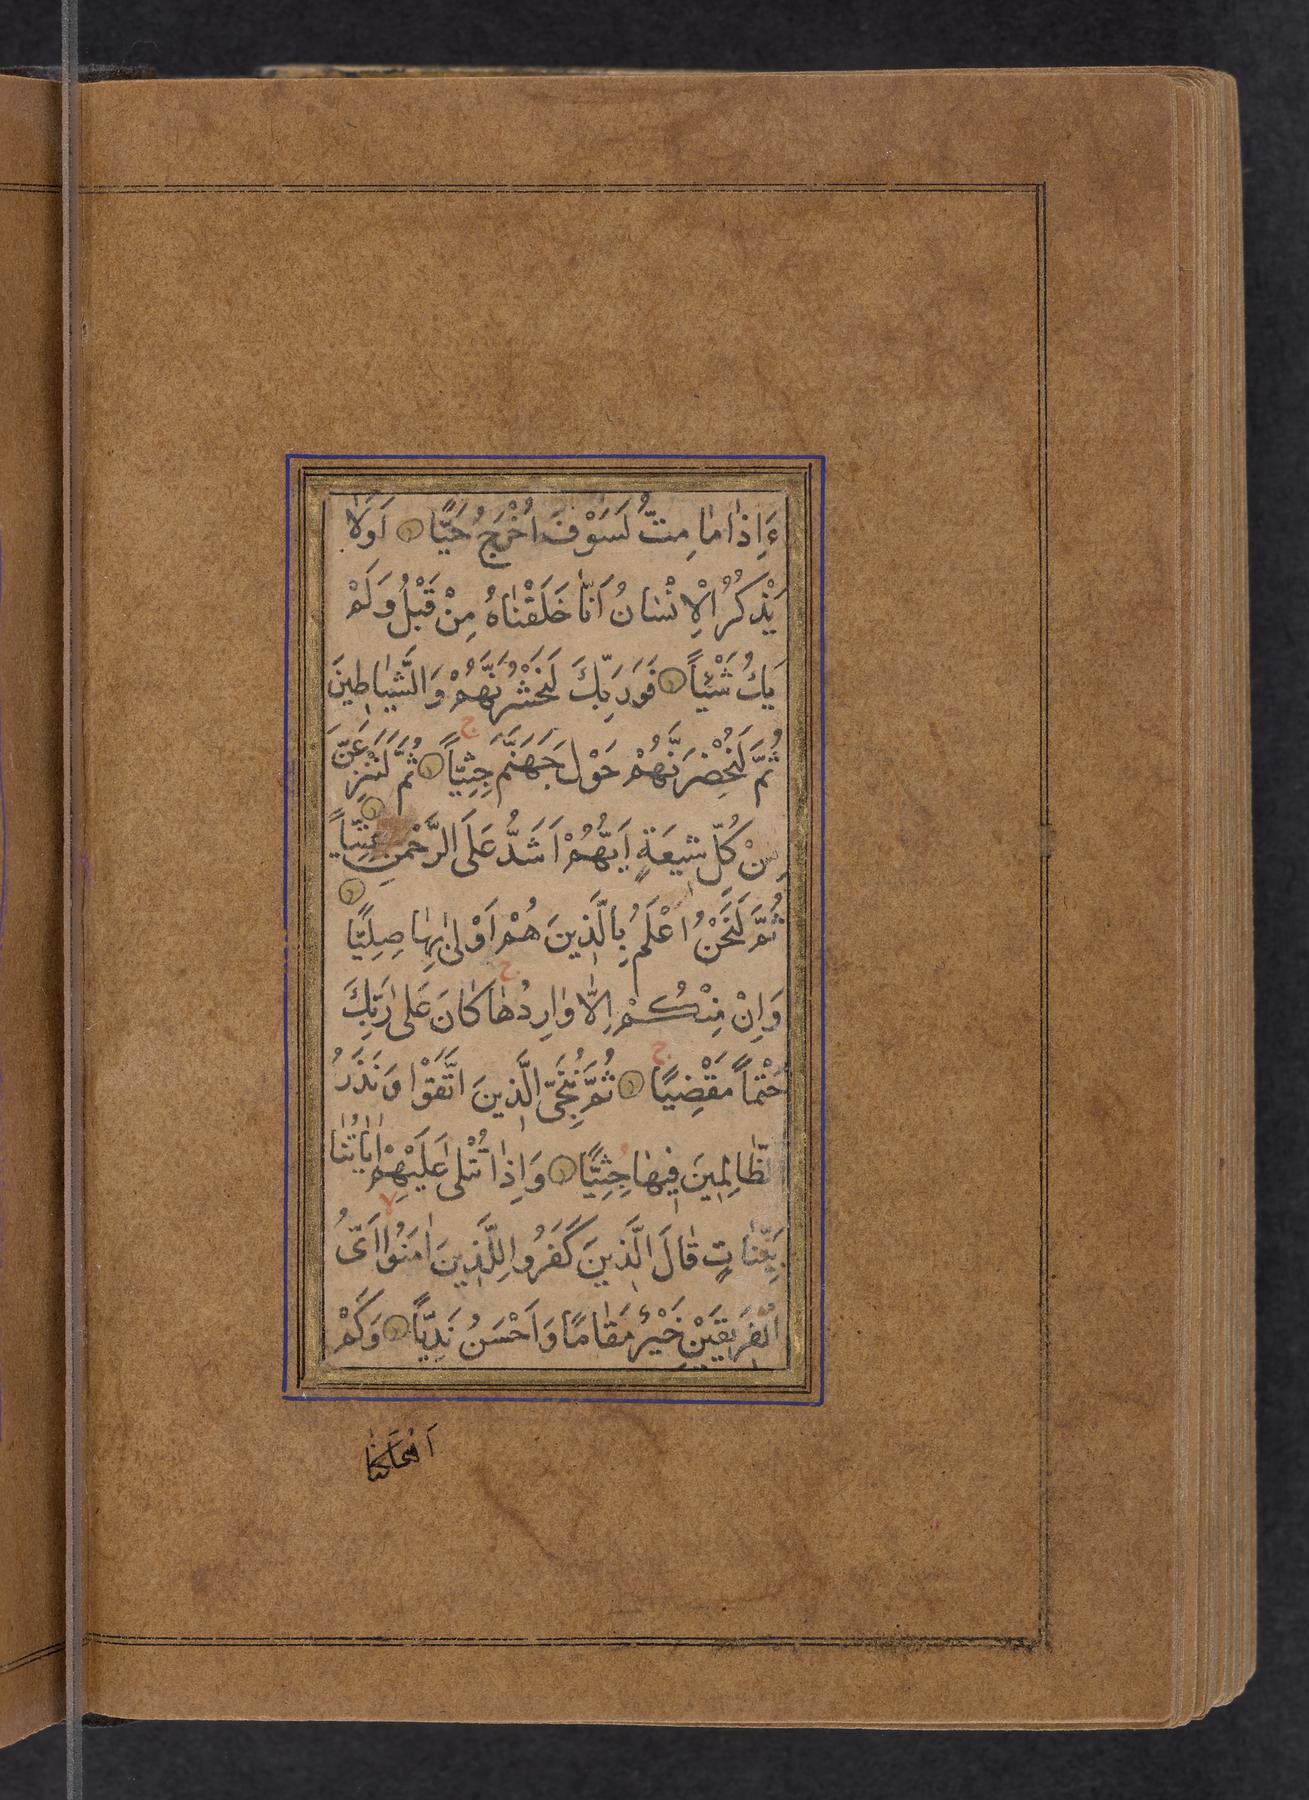 ءَاِذٰا مٰا مِتُّ لَسَوْفَ اُخْرَجُ حَيًّا اَوَلٰا
يَذْكُرُ الْاِنْسٰانُ اَنّٰا خَلَقْنٰاهُ مِنْ قَبْلُ وَلَمْ
يَكُ شَيْئاً فَوَرَبِّكَ لَنَحْشُرَنَّهُمْ وَالشَّيٰاطِينَ
ثُمَّ لَنُحْضِرَنَّهُمْ حَوْلَ جَهَنَّمَ جِثِيّاً ثُمَّ لَنَنْزِعَنَّ
مِنْ كُلِّ شِيعَةٍ اَيُّهُمْ اَشَدُّ عَلَى الرَّحْمٰنِ عِتِيّاً
ثُمَّ لَنَحْنُ اَعْلَمُ بِالَّذِينَ هُمْ اَوْلىٰ بِهٰا صِلِيًّا
وَاِنْ مِنْكُمْ اِلّٰا وٰارِدُهٰا كٰانَ عَلىٰ رَبِّكَ
حَتْماً مَقْضِيًا ثُمَّ نُنَجِّى الَّذِينَ اتَّقَوْا وَنَذَرُ
الظّٰالِمِينَ فِيهٰا جِثِيًّا وَاِذٰا تُتْلىٰ عَلَيْهِمْ اٰيٰاتُنٰا
بَيِّنٰاتٍ قٰالَ الَّذِينَ كَفَرُوا لِلَّذِينَ اٰمَنُوا اَىُّ
الْفَرِيقَيْنِ خَيْرٌ مَقٰامًا وَاَحْسَنُ نَدِيّاً وَكَمْ
اَهْلَكْنٰا